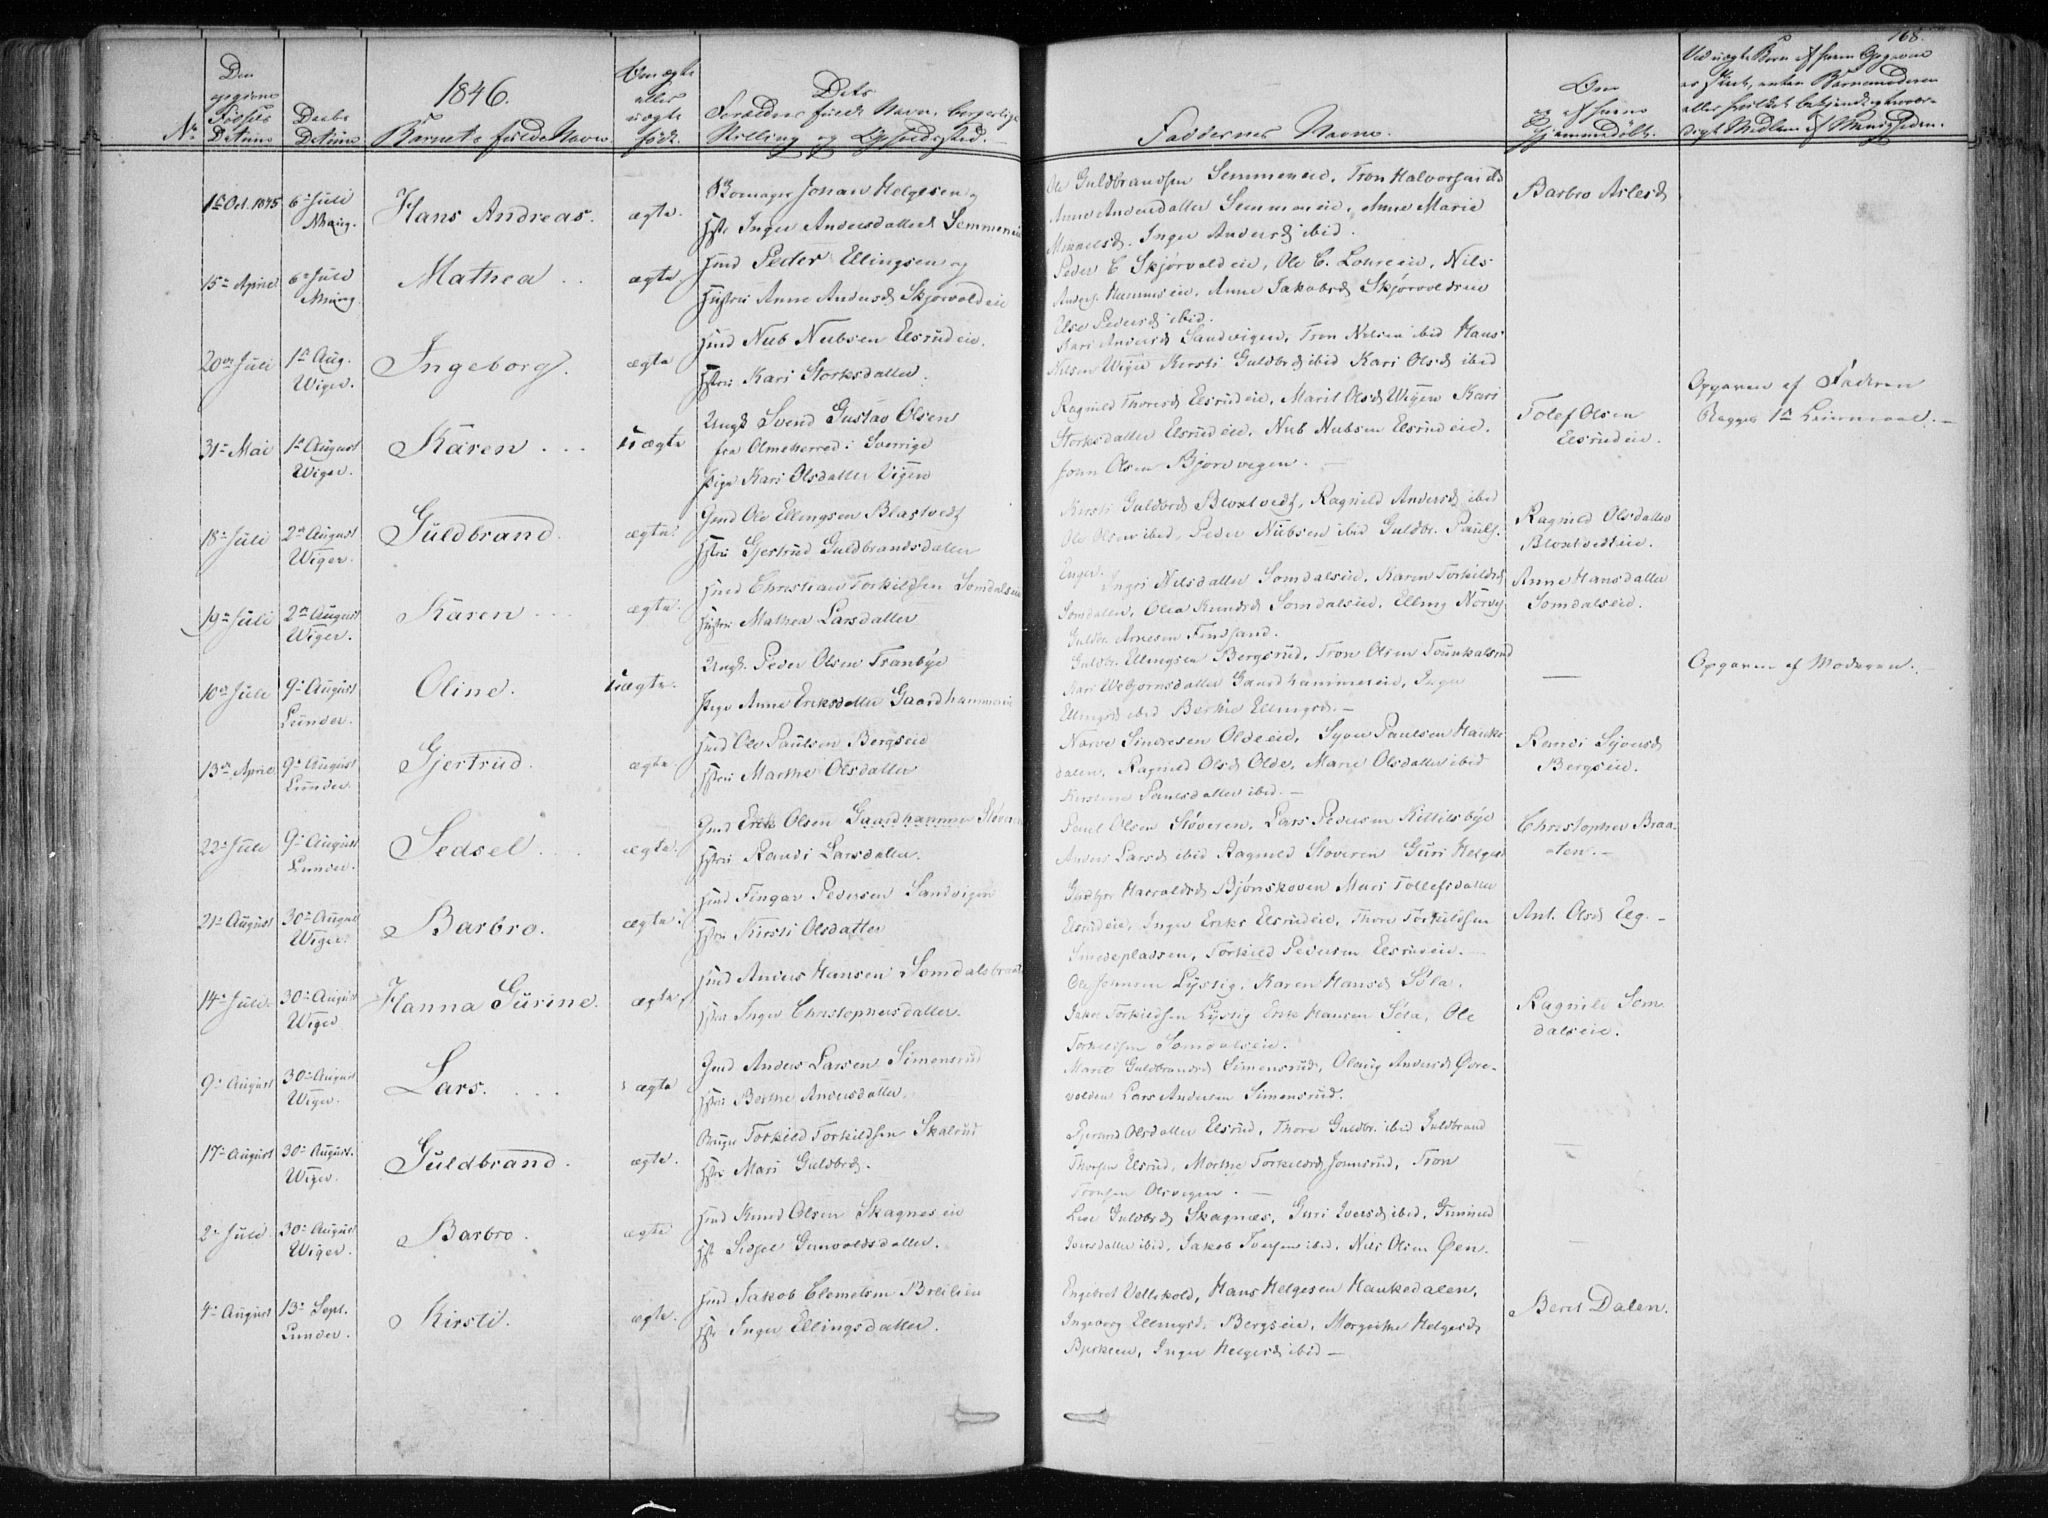 168.
1846.
Nr
Den opgivne Fødsels Datum
Daabs Datum
Barnets fulde Navn
Om ægte eller uægte født.
Dets Forældres fulde Navn, borgerlige Stilling og Opholdssted.
Faddernes Navne.
Om og af hvem hjemmedøbt.
1ste Oct. 1845 6te Juli Hans Andreas. ægte.
Johan Helgesen og
Inger Andersdatter Semmeneie
Ole Guldbrandsen Semmeneie, Tron Halvorsen
Anne Andersdatter Semmeneie, Anne Marie
Inger Andersd. ibid.
Barbro Aslesd
15de April 6te Juli Mathea ægte
Peder Ellingsen og
Hustru Anne Andersd. Skjørvoldeie
Peder E Skjørvoldeie, Ole C. Lohreeie, Nils
Anne Jakobsd. Skjørvoldeie
Else Pedersd ibid.
20de Juli 1ste Aug. Wiger. Ingeborg. ægte
Nub Nubsen Elsrudeie.
Kari Storksdatter.
Kari Andersd. Sandvigen, Tron Nilsen ibid Hans
Nilsen Wiger Kirsti Guldbrd ibid Kari Olsd ibid
31te Mai 1ste August Wiger. Karen uægte
Ungk Svend Gustav Olsen
fra Olmeherred i Sverrige
Pige Kari Olsdatter Vigen
Ragnild Thoresd Elsrudeie, Marit Olsd Wigen Kari
Storksdatter Elsrudeie, Nub Nubsen Elsrudeie.
John Olsen Bjørvegen.
Tolef Olsen
Elsrudeie.
Opgaven af Faderen
Begges 1ste Leiermaal.
18de Juli 2den August Wiger. Guldbrand. ægte.
Hmd Ole Ellingsen Blastvedt
Gjertrud Guldbrandsdatter
Kirsti Guldbrd Bloxtvedt, Ragnild Andersd ibid
Ole Olsen ibid, Peder Nubsen ibid Guldbr. Pauls.
Enger.
Ragnild Olsdatter
Bloxtvedteie.
19de Juli 2den August Wiger. Karen ægte.
Hmd Christian Torkildsen Somdalseie
Hustru Mathea Larsdatter
Ingri Nilsdatter Somdalseie, Karen Torkildsd
Somdalen, Olea Knudsd Somdalseie, Elling
Guldbr. Arnesen Findsand.
Anne Hansdatter
Somdalseie.
10de Juli 9de August Lunder. Oline. uægte.
Ungk. Peder Olsen Tranbye
Pige Anne Eriksdatter Gaardhammereie
Guldbr. Ellingsen Bergsrud, Tron Olsen
Kari Gaardhammereie, Inger
Ellingsd ibid Berthe Ellingsd.
Opgaven af Moderen.
13de April 9de August Lunder. Gjertrud. ægte.
Hmd Ole Paulsen Bergseie
Marthe Olsdatter
Narve Sindresen Oldeeie, Syver Paulsen Hauke-
dalen, Ragnild Olsd Olde, Marie Olsdatter ibid
Kirstine Paulsdatter ibid.
Randi Syversd
Bergseie.
22de Juli 9de August Lunder. Sedsel. ægte.
Hmd Erik Olsen Gaardhammer Støveren
Randi Larsdatter.
Paul Olsen Støveren, Lars Pedersen Kittilsbye
Anders Lars ibid Ragnild Støveren Guri Helges
Christopher Braa-
aten.
21de August 30te August Wiger. Barbro. ægte.
Hmd Fingar Pedersen Sandvigen
Kirsti Olsdatter
Haraldsd Bjønskoven Mari Tollefsdatter
Elsrudeie, Inger Eriks Elsrudeie, Thore Torkildsen
Smedepladsen, Torkild Pedersen Elsrudeie.
Ant. Olsd Elg.
14de Juli 30te August Wiger Hanna Gurine. ægte.
Hmd Anders Hansen Somdalsbraaten
Inger Christophersdatter.
Ole Johnsen Lystig, Karen Hansd Sola.
Torkildsen Lystig Erik Hansen Sola, Ole
Torkildsen Somdalseie.
Ragnild Som-
dalseie.
9de August 30te August Wiger. Lars. ægte
Hmd Anders Larsen Simensrud
Berthe Andersdatter.
Marie Guldbrandsd Simensrud, Olaug Andersd Øvre-
volden Lars Andersen Simensrud.
17de August 30te August. Wiger. Guldbrand. ægte.
Torkild Torkildsen Skalrud
Mari Guldbrd.
Olsdatter Elsrud, Thore Guldbr. ibid Guldbrand
Thorsen Elsrud, Marthe Torkildsd Jonnsrud, Tron
Tronsen Olsvegen.
2de Juli 30te August Wiger. Barbro. ægte
Hmd Knud Olsen Skagneseie
Sidsel Gunvoldsdatter.
Guldbrd Skagnæs, Guri Iversd ibid, Gunild
Iversdatter ibid, Jakob Iversen ibid, Nils Olsen Øen.
4de August 13de Sept. Lunder. Kirsti. ægte.
Hmd Jakob Clemetsen Breilien
Inger Ellingsdatter.
Engebret Veltskold, Hans Helgesen Haukedalen,
Ingeborg Ellingsd. Bergseie, Margrethe Helgesd
Bjerkeen, Inger Helgesd ibid
Berit Dalen.